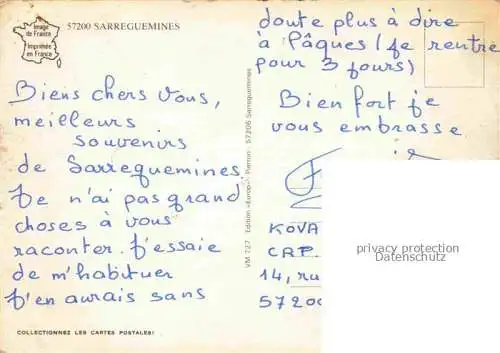 Image
de France
Imprimée
en France
57200 SARREGUEMINES
Biens chers vous,
meilleurs
souvenirs
de Sarreguemines
Je n'ai pas grand
choses à vous
raconter. J'essaie
de m'habituer
J'en aurais sans
COLLECTIONNEZ LES CARTES POSTALES!
VM 727 Edition «Europ» Pierron - 57206 Sarreguemines
doute plus à dire
à Pâques (je rentre
pour 3 jours)
Bien fort je
vous embrasse
KOVA
CRP.
14, ru
57200
privacy protection
Datenschutz